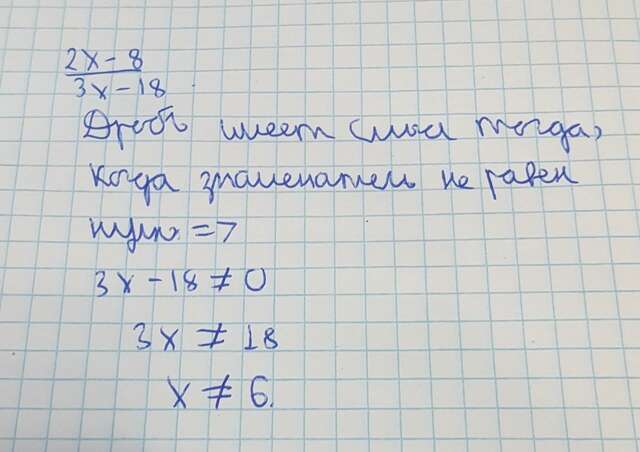 2x-8
3x-18
Дробь имеет смысл тогда,
когда знаменатель не равен
нулю. =>
3x-18≠0
3x≠18
x≠6.